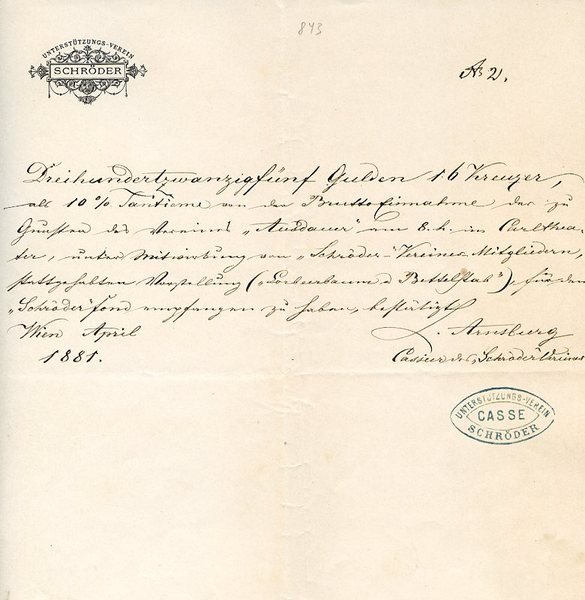 843
UNTERSTÜTZUNGS-VEREIN
SCHRÖDER
No 2.
Dreihundertzwanzigfünf Gulden 16 Kreuzer,
als 10% Tantieme von der Brutto Einnahme der zu
Gunsten des Vereines „Ausdauer" am 8. h. im Carlthea-
ter, unter Mitwirkung von „Schröder"-Vereins-Mitgliedern,
stattgehabten Vorstellung („Lorbeerbaum u Bettelstab"), für den
„Schröder"fond empfangen zu haben, bestätigt
Wien April
1881.
L. Arnsburg
Cassier des „Schröder"Vereines
UNTERSTÜTZUNGS-VEREIN
CASSE
SCHRÖDER